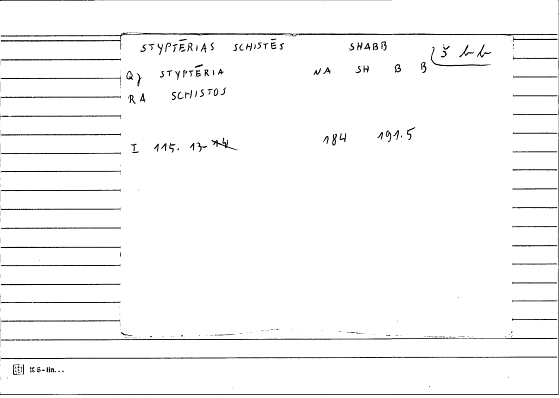 STYPTĒRIAS SCHISTĒS SHABB š b b
Qy STYPTĒRIA NA SH B B
RA SCHISTOS
I 115. 13-14 184 191.5